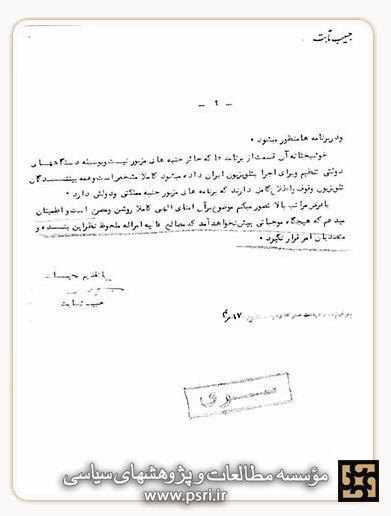 حبیب ثابت
- ۲ -
و در برنامه ها منظور میشود .
خوشبختانه آن قسمت از برنامه ها که حائز جنبه های مزبور نیست و بوسیله دستگاههای
دولتی تنظیم و برای اجرا بتلویزیون ایران داده میشود کاملا مشخص است و همه بینندگان
تلویزیون وقوف و اطلاع کامل دارند که برنامه های مزبور جنبه مملکتی و دولتی دارد .
با عرض مراتب بالا تصور میکنم موضوع برای امنای الهی کاملا روشن و مبرهن است و اطمینان
میدهم که هیچگاه موجباتی پیش نخواهد آمد که مصالح عالیه امرالله ملحوظ نظر این بنده و
متصدیان امر قرار نگیرد .
با تقدیم تحیات
حبیب ثابت
سری
مؤسسه مطالعات و پژوهشهای سیاسی
www.psri.ir